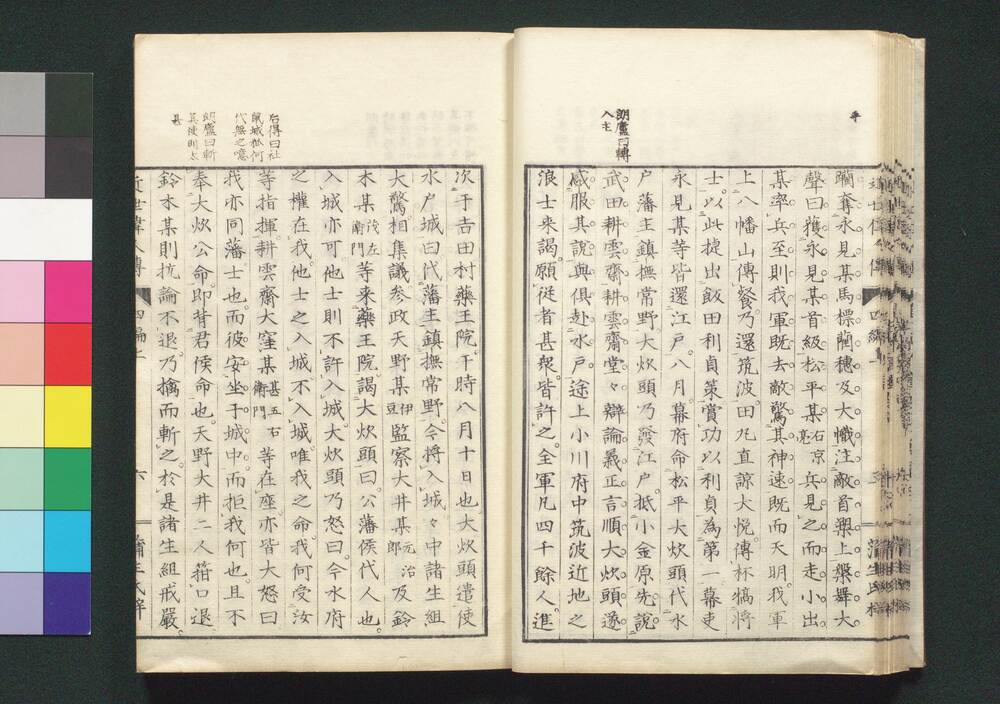 乎
朗廬曰轉
入主
躝奪永見某馬標藺穗及大幟注敵首槊上槃舞大
聲曰獲永見某首級松平某石京亮兵見之而走小出
某率兵至則我軍既去敵驚其神速既而天明我軍
上八幡山傳餐乃還筑波田九直諒大悅傳杯犒將
士以此捷出飯田利貞策賞功以利貞為第一幕吏
永見某等皆還江戸八月幕府命松平大炊頭代水
戸藩主鎮撫常野大炊頭乃發江戸抵小金原先說
武田耕雲齋耕雲齋堂々辯論義正言順大炊頭遂
感服其說與俱赴水戸途上小川府中筑波近地之
浪士來謁願從者甚衆皆許之全軍凡四千餘人進
右傅曰社
鼠城狐何
代無之噫
朗廬曰斬
其使則太
甚
次于吉田村藥王院于時八月十日也大炊頭遣使
水戸城曰代藩主鎮撫常野今將入城々中諸生組
大驚相集議參政天野某伊豆監察大井某元治郎及鈴
木某茂左衛門等来藥王院謁大炊頭曰公藩侯代人也
入城亦可他士則不許入城大炊頭乃怒曰今水府
之權在我他士之入城不入城唯我之命我何受汝
等指揮耕雲齋大窪某甚五左衛門等在座亦皆大怒曰
我亦同藩士也而彼安坐于城中而拒我何也且不
奉大炊公命即背君侯命也天野大井二人箝口退
鈴木某則抗論不退乃擒而斬之於是諸生組戒嚴
近世偉人傳 四編上 六 蒲生氏梓